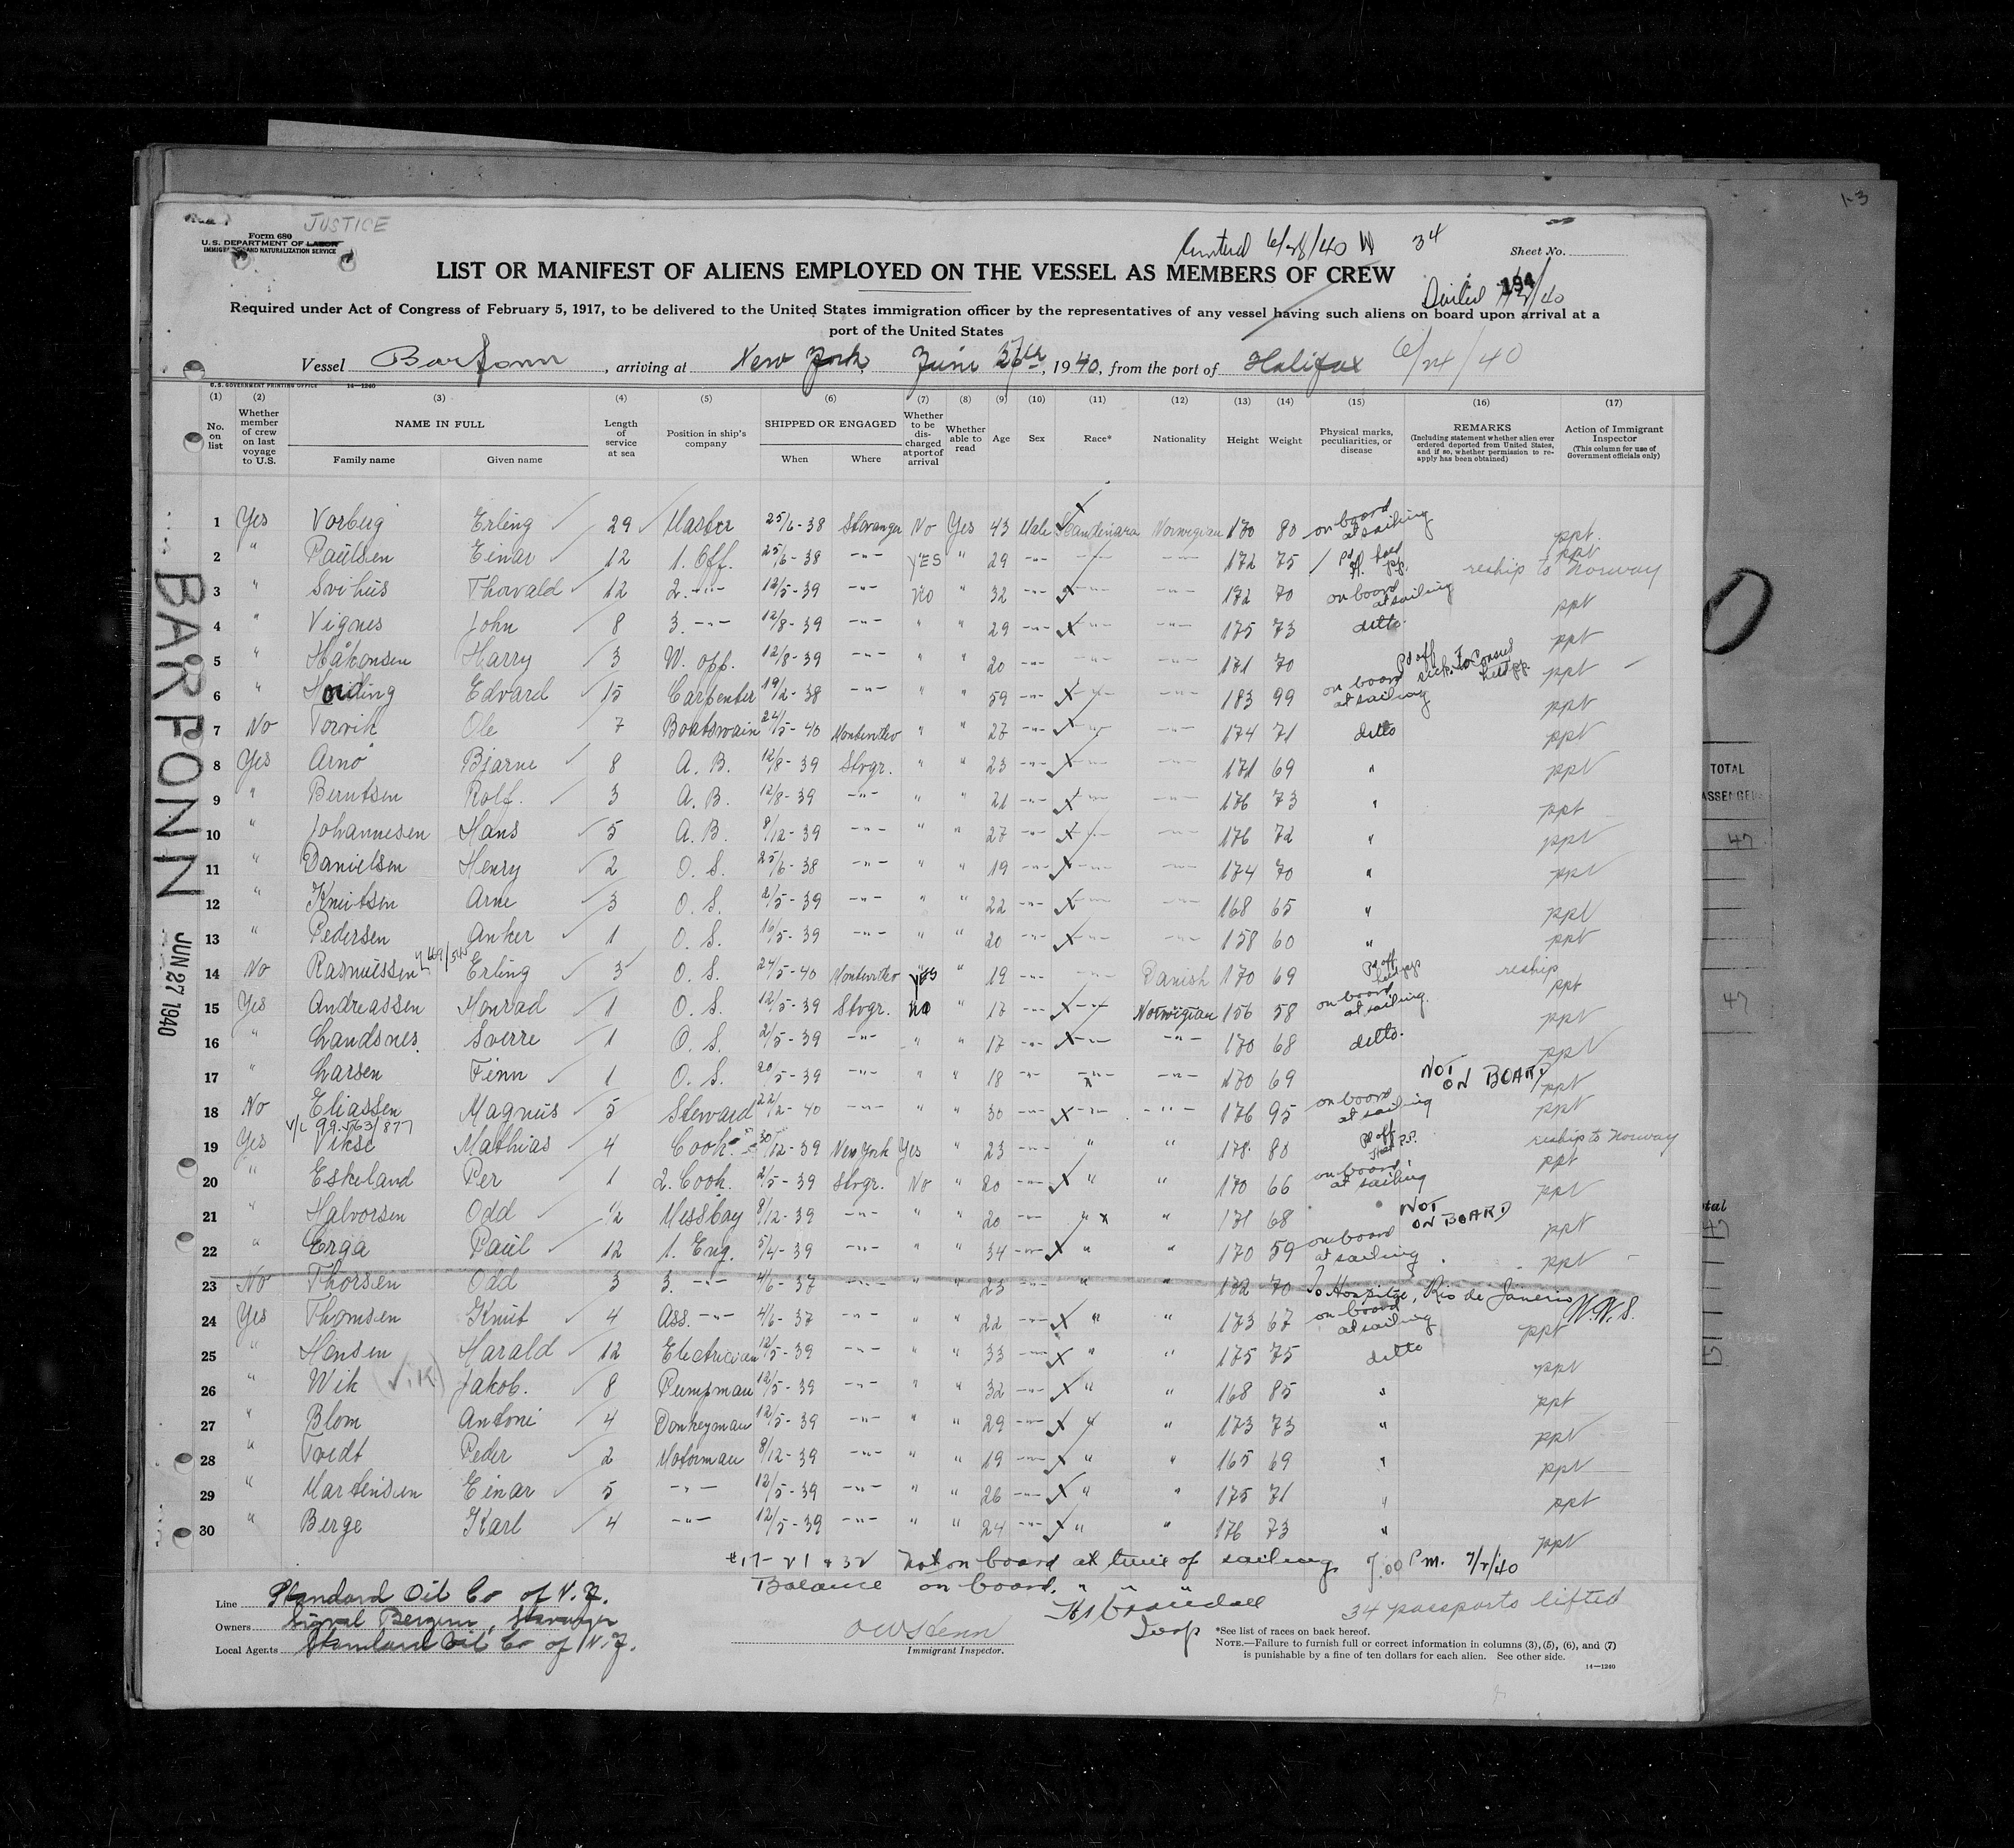 1-3
JUSTICE
Form 680
U.S. DEPARTMENT OF LABOR
IMMIGRATION AND NATURALIZATION SERVICE
6/28/40 34
Sheet No.
LIST OR MANIFEST OF ALIENS EMPLOYED ON THE VESSEL AS MEMBERS OF CREW
194
Required under Act of Congress of February 5, 1917, to be delivered to the United States immigration officer by the representatives of any vessel having such aliens on board upon arrival at a
port of the United States
Vessel Barfonn, arriving at New York, June 27th, 1940, from the port of Halifax 6/24/40
U.S. GOVERNMENT PRINTING OFFICE 14-1240
(1) (2) (3) (4) (5) (6) (7) (8) (9) (10) (11) (12) (13) (14) (15) (16) (17)
No. on list
Whether member of crew on last voyage to U.S.
NAME IN FULL
Family name Given name
Length of service at sea
Position in ship's company
SHIPPED OR ENGAGED
When Where
Whether to be discharged at port of arrival
Whether able to read
Age Sex Race* Nationality Height Weight
Physical marks, peculiarities, or disease
REMARKS
(Including statement whether alien ever ordered deported from United States, and if so, whether permission to reapply has been obtained)
Action of Immigrant Inspector
(This column for use of Government officials only)
1 Yes Vorberg Erling 29 Master 25/6-38 Stavanger No Yes 43 Male Scandinavia Norwegian 170 80 on board at sailing ppt.
2 " Paulsen Einar 12 1. Off. 25/6-38 -"- YES " 29 -"- -"- -"- 172 75 reship to Norway ppt
3 " Svihus Thorvald 12 2. -"- 12/5-39 -"- No " 32 -"- x -"- -"- 172 70 on board at sailing ppt
4 " Vignes John 8 3. -"- 12/8-39 -"- " " 29 -"- x -"- -"- 175 73 ditto. ppt
5 " Håkonsen Harry 3 W. opp. 12/8-39 -"- " " 20 -"- -"- -"- 171 70 Pd off sick. To Consul held pp. ppt
6 " Hoiding Edvard 15 Carpenter 19/2-38 -"- " " 59 -"- x -"- -"- 183 99 on board at sailing ppt
7 No Torvik Ole 7 Boatswain 24/5-40 Montevideo " " 27 -"- x -"- -"- 174 71 ditto ppt
8 Yes Arnø Bjarne 8 A. B. 12/8-39 Stvgr. " " 23 -"- x -"- -"- 171 69 " ppt
9 " Berntsen Rolf. 3 A. B. 12/8-39 -"- " " 21 -"- x -"- -"- 176 73 " ppt
10 " Johannesen Hans 5 A. B. 8/12-39 -"- " " 27 -"- x -"- -"- 176 72 " ppt
11 " Danielsen Henry 2 O. S. 25/6-38 -"- " " 19 -"- x -"- -"- 174 70 " ppt
12 " Knutsen Arne 3 O. S. 2/5-39 -"- " " 22 -"- x -"- -"- 168 65 " ppt
13 " Pedersen Anker 1 O. S. 16/5-39 -"- " " 20 -"- x -"- -"- 158 60 " ppt
14 No Rasmussen Erling 3 O. S. 24/5-40 Montevideo YES " 19 -"- -"- Danish 170 69 Pd off held pp. reship ppt
15 Yes Andreassen Konrad 1 O. S. 12/5-39 Stvgr. No " 17 -"- x -"- Norwegian 156 58 on board at sailing. ppt
16 " Landsnes Sverre 1 O. S. 2/5-39 -"- " " 17 -"- x -"- -"- 170 68 ditto. ppt
17 " Larsen Finn 1 O. S. 20/5-39 -"- " " 18 -"- x -"- -"- 170 69 NOT ON BOARD ppt
18 No Eliassen Magnus 5 Steward 22/2-40 -"- " " 30 -"- x -"- -"- 176 95 on board at sailing ppt
19 Yes Vikse Mathias 4 Cook 30/12-39 New York Yes " 23 -"- " " 178 80 Pd off held P.P. reship to Norway ppt
20 " Eskeland Per 1 2. Cook. 2/5-39 Stvgr. No " 20 -"- x " " 170 66 on board at sailing ppt
21 " Halvorsen Odd 1/2 Messboy 8/12-39 -"- " " 20 -"- " x " 171 68 NOT ON BOARD ppt
22 " Erga Paul 12 1. Eng. 5/4-39 -"- " " 34 -"- x " " 170 59 on board at sailing ppt
23 No Thorsen Odd 3 3. -"- 4/6-37 -"- " " 23 -"- " " 172 70 To Hospital, Rio de Janerio
24 Yes Thomsen Knut 4 Ass. -"- 4/6-37 -"- " " 22 -"- x " " 173 67 on board at sailing ppt
25 " Hansen Harald 12 Electrician 12/5-39 -"- " " 33 -"- x " " 175 75 ditto ppt
26 " Wik (VIK) Jakob. 8 Pumpman 12/5-39 -"- " " 32 -"- x " " 168 85 " ppt
27 " Blom Antoni 4 Donkeyman 12/5-39 -"- " " 29 -"- x " " 173 73 " ppt
28 " Tvedt Peder 2 Motorman 8/12-39 -"- " " 19 -"- x " " 165 69 " ppt
29 " Martinsen Einar 5 -"- 12/5-39 -"- " " 26 -"- x " " 175 71 " ppt
30 " Berge Karl 4 -"- 12/5-39 -"- " " 24 -"- x " " 176 73 " ppt
#17-21 & 32 Not on board at time of sailing 7:00 P.m. 7/2/40
Balance on board. " " "
Line Standard Oil Co of N.J.
Owners Sigval Bergesen, Stavanger
Local Agents Standard Oil Co of N.J.
Immigrant Inspector.
34 passports lifted
*See list of races on back hereof.
NOTE.—Failure to furnish full or correct information in columns (3), (5), (6), and (7)
is punishable by a fine of ten dollars for each alien. See other side.
14-1240
BARFONN
JUN 27 1940
TOTAL
PASSENGERS
47
47